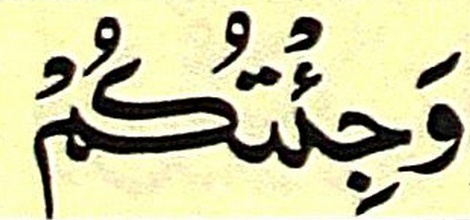 وَجِئْتُكُمْ